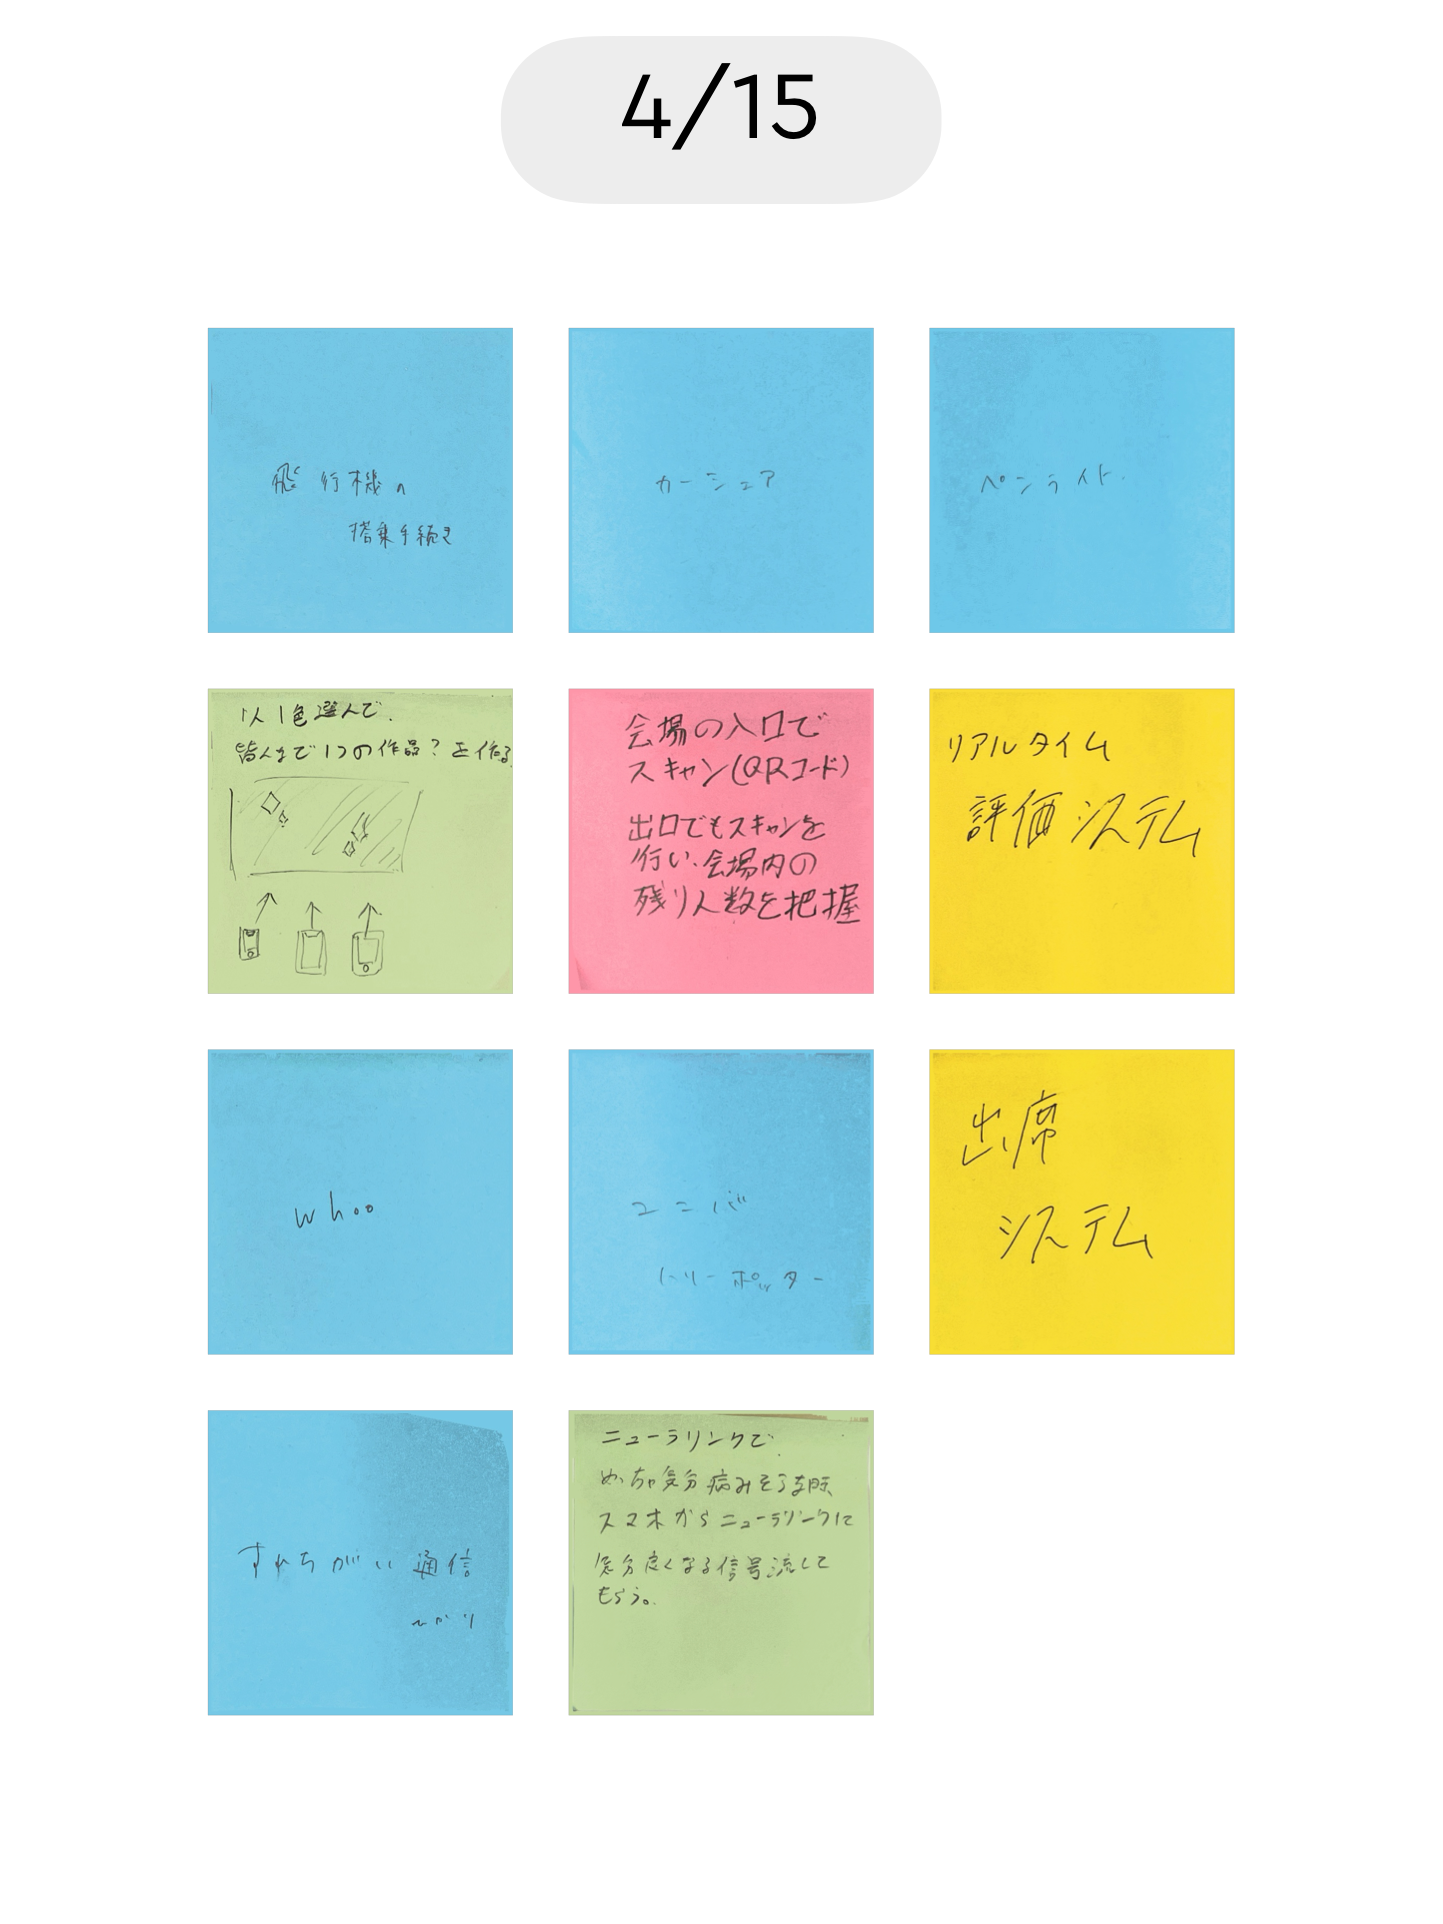 4/15
飛行機の
搭乗手続き
カーシェア
ペンライト
1人1色選んで、
皆んなで1つの作品?を作る
会場の入口で
スキャン(QRコード)
出口でもスキャンを
行い、会場内の
残り人数を把握
リアルタイム
評価システム
whoo
ユニバ
ハリーポッター
出席
システム
すれちがい通信
ニューラリンクで
めっちゃ気分病みそうな時、
スマホからニューラリンクに
気分良くなる信号流して
もらう。